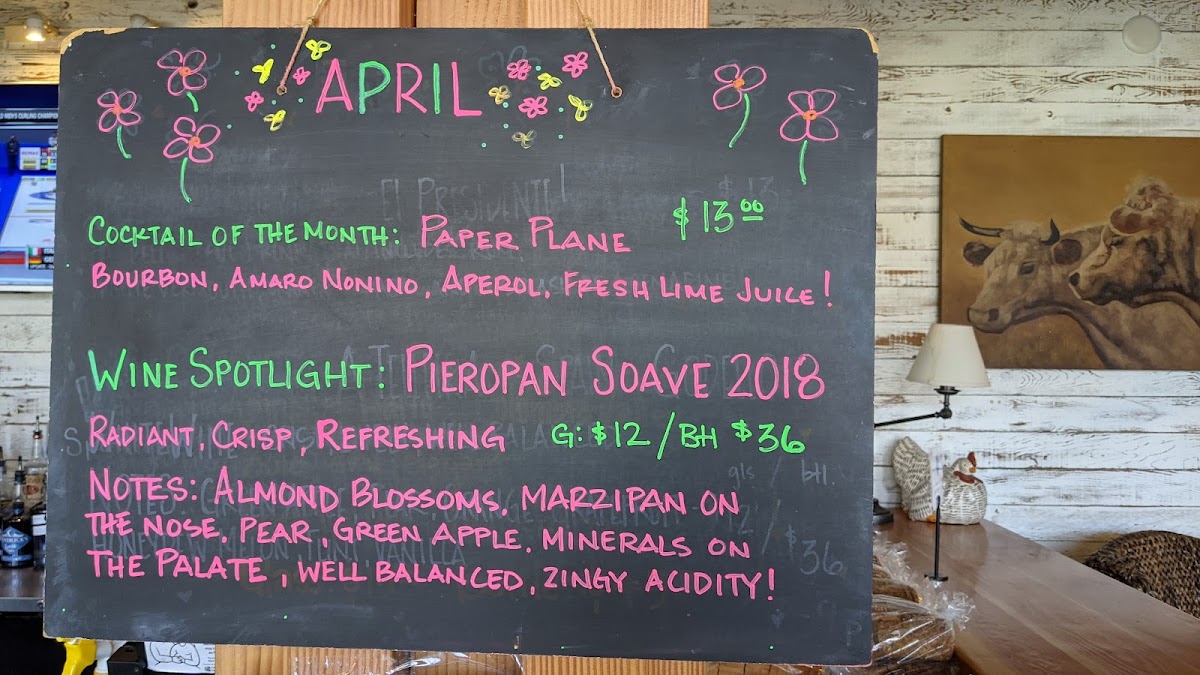 APRIL
COCKTAIL OF THE MONTH: PAPER PLANE $13.00
BOURBON, AMARO NONINO, APEROL, FRESH LIME JUICE!
WINE SPOTLIGHT: PIEROPAN SOAVE 2018
RADIANT, CRISP, REFRESHING G: $12 / BH $36
NOTES: ALMOND BLOSSOMS, MARZIPAN ON
THE NOSE, PEAR, GREEN APPLE, MINERALS ON
THE PALATE, WELL BALANCED, ZINGY ACIDITY!
EL PRESIDENTE!
gls / bH.
$36
MEN'S CURLING CHAMPION